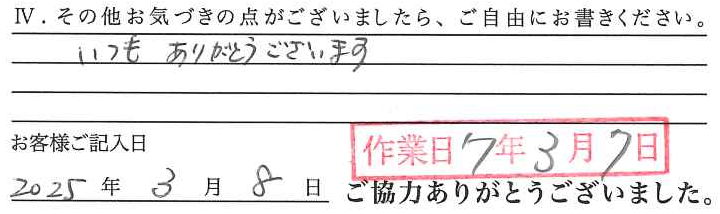 Ⅳ．その他お気づきの点がございましたら、ご自由にお書きください。
いつも ありがとうございます
お客様ご記入日
作業日 7年3月7日
2025年 3月 8日
ご協力ありがとうございました。